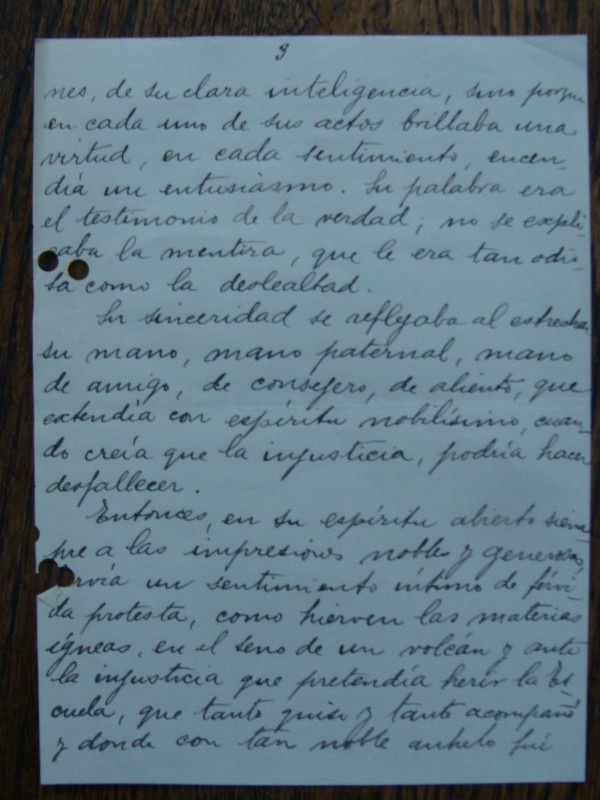 3
nes, de su clara inteligencia, sino porque
en cada uno de sus actos brillaba una
virtud, en cada sentimiento, encen-
día un entusiasmo. Su palabra era
el testimonio de la verdad; no se expli-
caba la mentira, que le era tan odio-
sa como la deslealtad.
Su sinceridad se reflejaba al estrechar
su mano, mano paternal, mano
de amigo, de consejero, de aliento, que
extendía con espíritu nobilísimo, cuan-
do creía que la injusticia, podría hacer
desfallecer.
Entonces, en su espíritu abierto siem-
pre a las impresiones nobles y generosas,
hervía un sentimiento íntimo de férvi-
da protesta, como hierven las materias
ígneas, en el seno de un volcán y ante
la injusticia que pretendía herir la Es-
cuela, que tanto quiso y tanto acompañó
y donde con tan noble anhelo fué